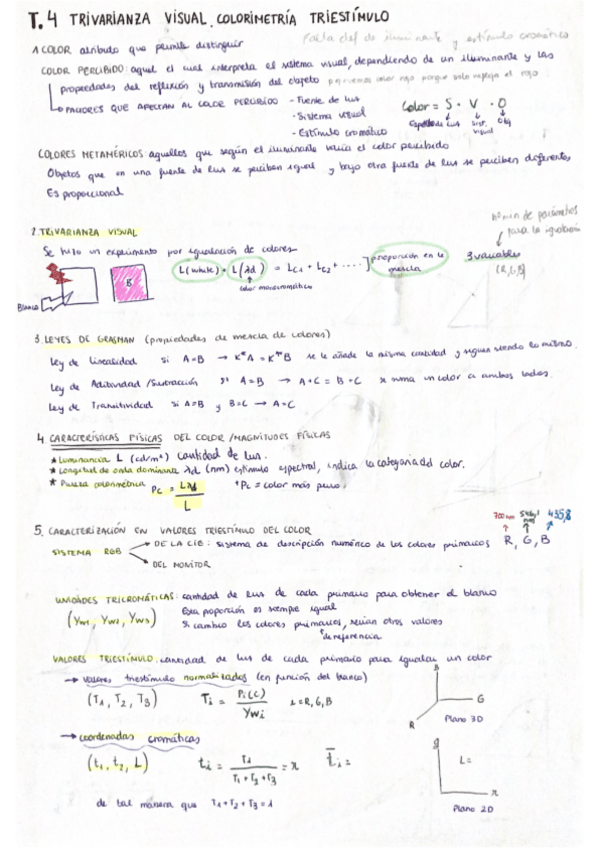 T.4 TRIVARIANZA VISUAL. COLORIMETRÍA TRIESTÍMULO
Falta def de iluminante y estímulo cromático
1. COLOR atributo que permite distinguir
COLOR PERCIBIDO: aquel el cual interpreta el sistema visual, dependiendo de un iluminante y las
propiedades del reflexión y transmisión del objeto percibimos color rojo porque solo refleja el rojo
FACTORES QUE AFECTAN AL COLOR PERCIBIDO - Fuente de luz
- Sistema visual
- Estímulo cromático
Color = S · V · O
Espectro de luz sist. visual obj
COLORES METAMÉRICOS aquellos que según el iluminante varía el color percibido
Objetos que en una fuente de luz se perciben igual y bajo otra fuente de luz se perciben diferentes,
Es proporcional
2. TRIVARIANZA VISUAL
nº min de parámetros
para la igualación
Se hizo un experimento por igualación de colores
L(white) + L(λd) = LC1 + LC2 + ....] proporción en la mezcla
3 variables
(R,G,B)
color monocromático
B
Blanco
3. LEYES DE GRASMAN (propiedades de mezcla de colores)
Ley de Linealidad si A=B → K*A = K*B se le añade la misma cantidad y siguen siendo lo mismo.
Ley de Aditividad /Sustracción si A=B → A+C = B+C se suma un color a ambos lados.
Ley de Transitividad si A=B y B=C → A=C
4. CARACTERÍSTICAS FÍSICAS DEL COLOR /MAGNITUDES FÍSICAS
* Luminancia L (cd/m²) cantidad de luz.
* Longitud de onda dominante λd (nm) estímulo espectral, indica la categoría del color.
* Pureza colorimétrica Pc = Lλd / L ↑Pc = color más puro.
5. CARACTERIZACIÓN EN VALORES TRIESTÍMULO DEL COLOR
700nm 546,1 nm 435,8
SISTEMA RGB
DE LA CIE: sistema de descripción numérico de los colores primarios R, G, B
DEL MONITOR
UNIDADES TRICROMÁTICAS: cantidad de luz de cada primario para obtener el blanco
(Yw1, Yw2, Yw3)
Esta proporción es siempre igual
Si cambio los colores primarios, serían otros valores
de referencia
VALORES TRIESTÍMULO: cantidad de luz de cada primario para igualar un color
→ valores triestímulo normalizados (en función del blanco)
(T1, T2, T3) Ti = Pi(C) / Ywi i=R,G,B
B
G
R
Plano 3D
→ coordenadas cromáticas
(t1, t2, L) ti = T1 / T1+T2+T3 = r t̄i =
g
L=
r
Plano 2D
de tal manera que T1+T2+T3=1